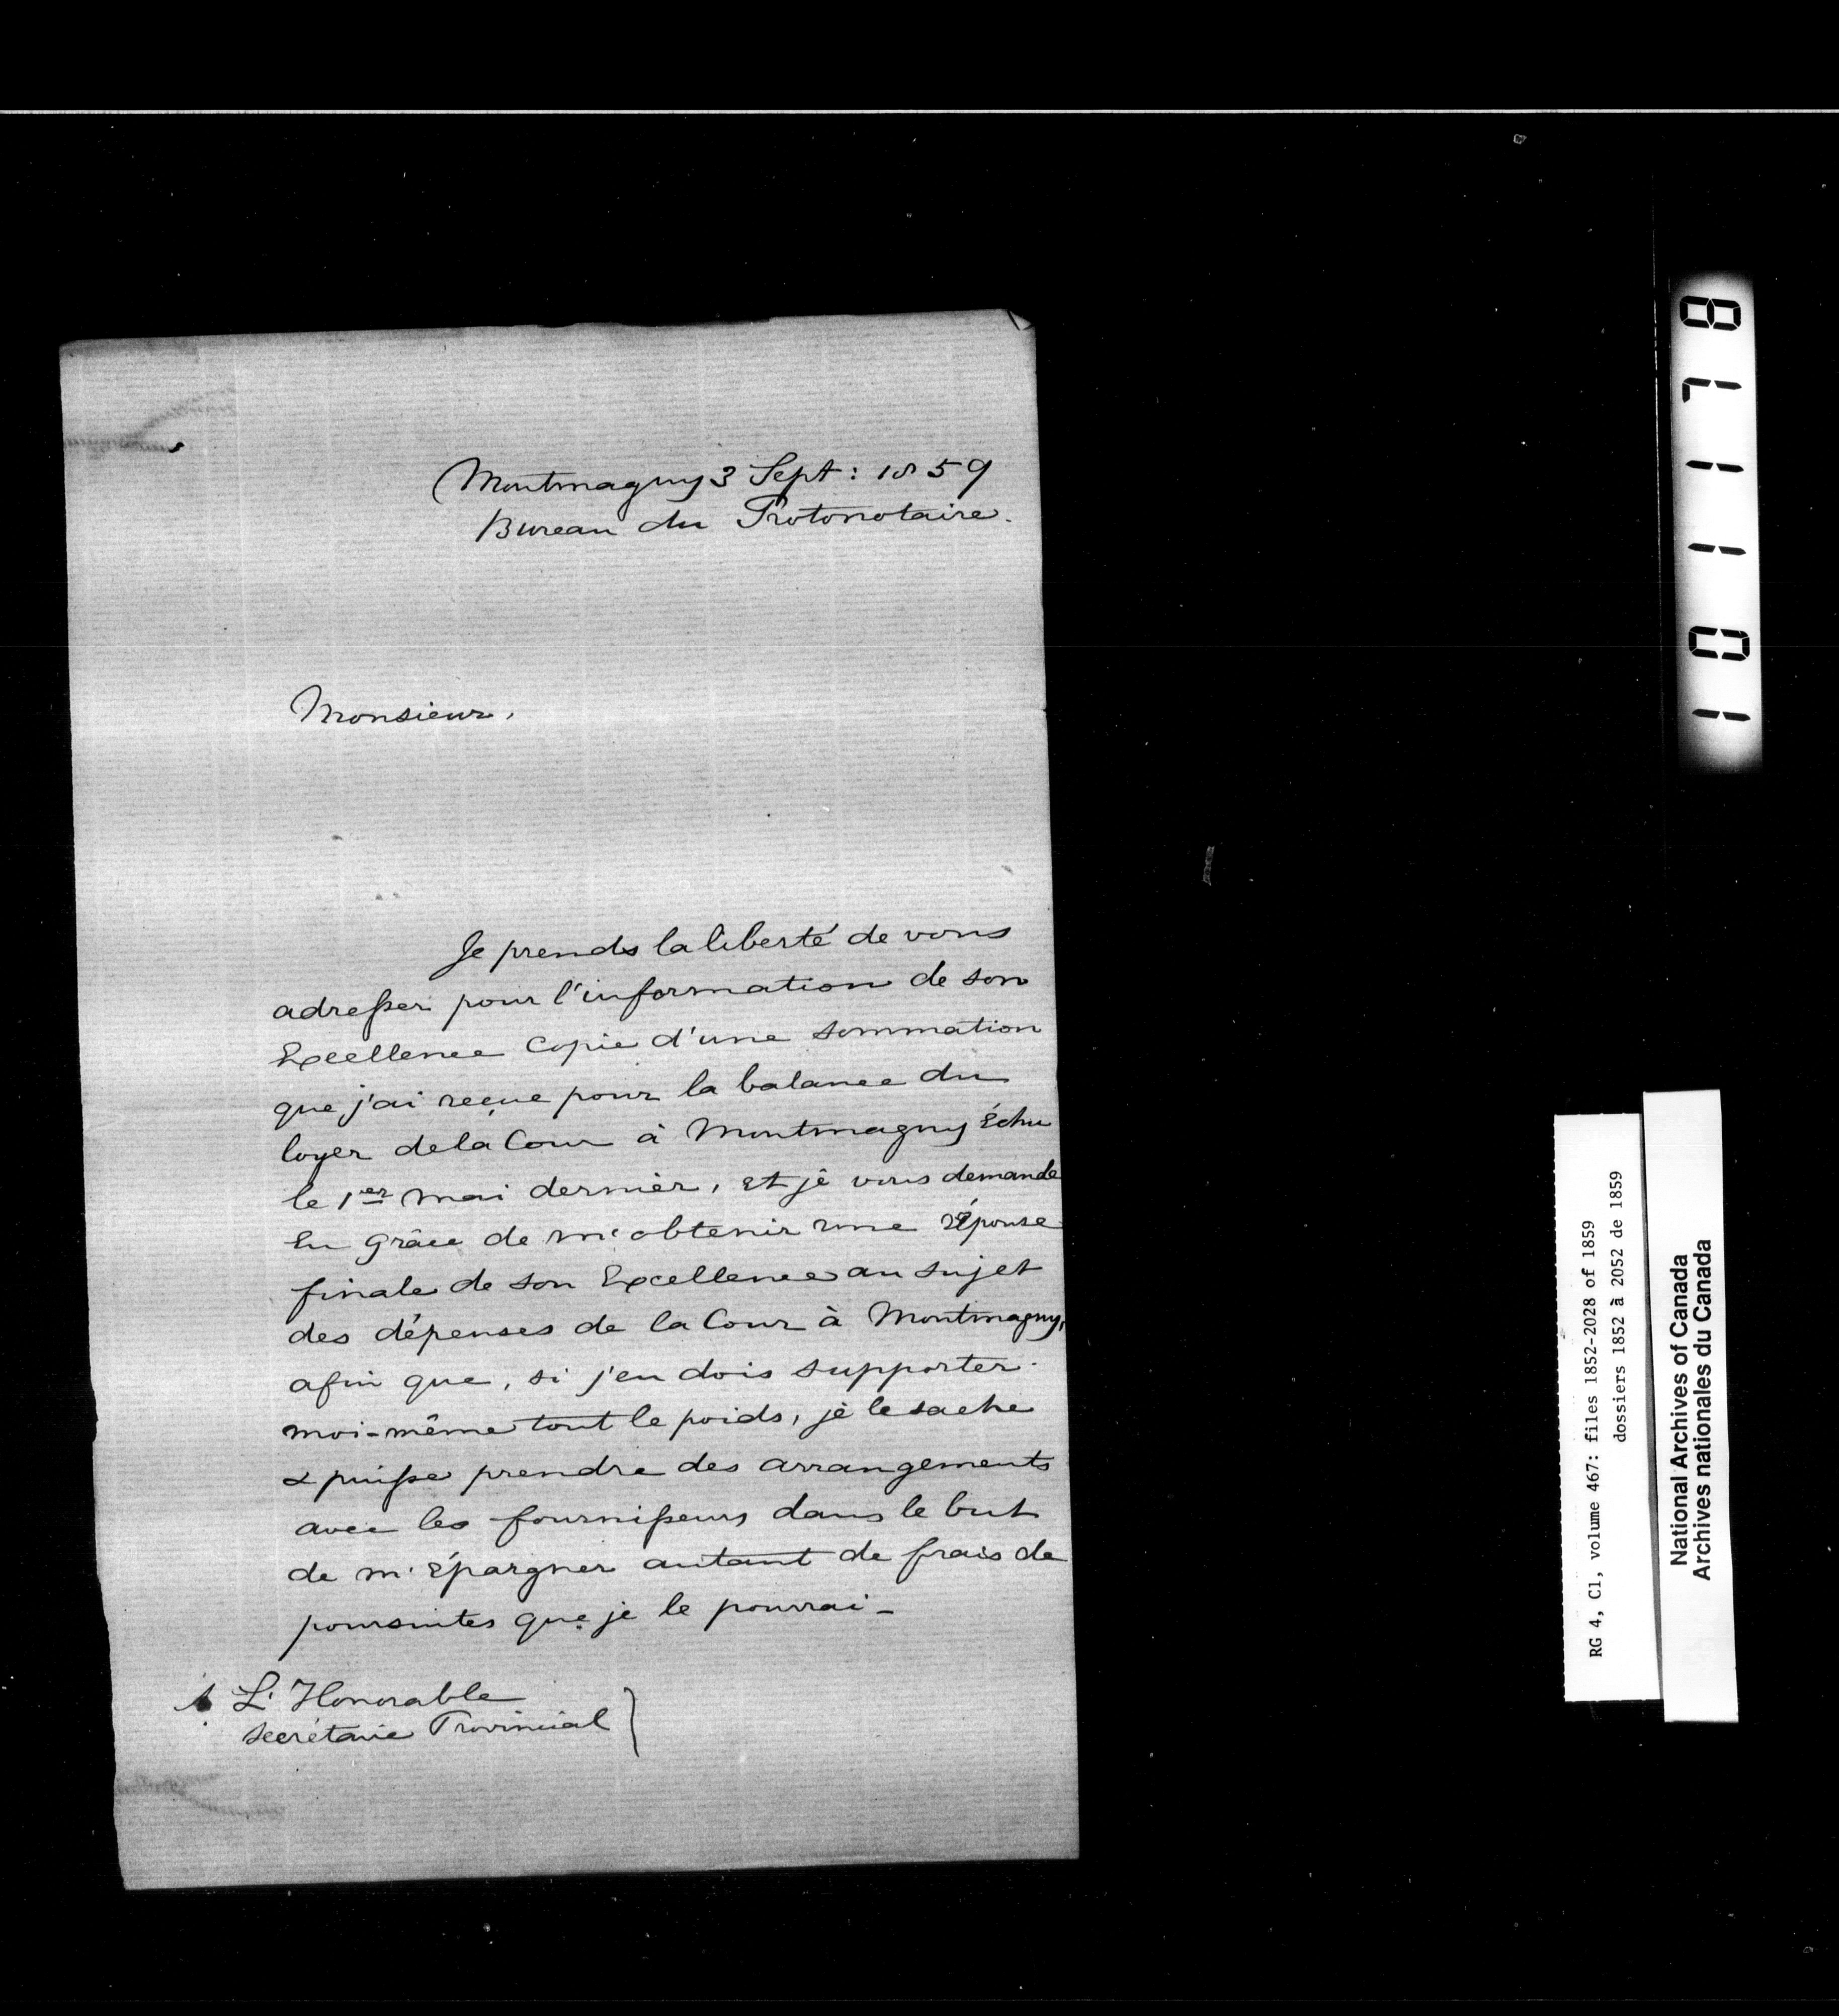 Montmagny 3 Sept: 1859
Bureau du Protonotaire.
Monsieur,
Je prends la liberté de vous
adresser pour l'information de son
Excellence Copie d'une sommation
que j'ai reçue pour la balance du
loyer de la Cour à Montmagny Échu
le 1er mai dernier, et je vous demande
En grâce de m'obtenir une réponse
finale de son Excellence au sujet
des dépenses de la Cour à Montmagny,
afin que, si j'en dois supporter
moi-même tout le poids, je le sache
& puisse prendre des arrangements
avec les fournisseurs dans le but
de m'Épargner autant de frais de
poursuites que je le pourrai -
À L'Honorable
Secrétaire Provincial
101178
RG 4, C1, volume 467: files 1852-2028 of 1859
dossiers 1852 à 2052 de 1859
National Archives of Canada
Archives nationales du Canada